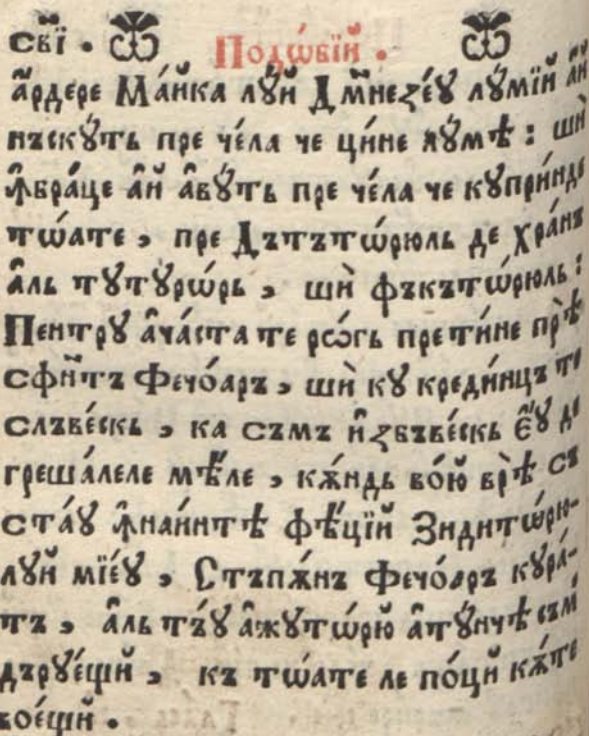 свї · Подѡ́бїй ·
а҆́рдере Ма́йка лꙋ́й Дм҃незе́ꙋ лꙋ́мїй а҆́й
нъскꙋ́ть пре че́ла че ци́не лꙋ́мѣ : шѝ
ꙟ҆бра́це а҆́й а҆вꙋ́ть пре че́ла че кꙋпри́нде
тѡ́ате , пре Дътътѡ́рюль де хра́нъ
а҆́ль тꙋтꙋрѡ́рь , шѝ фъкътѡ́рюль :
Пентрꙋ а҆ча́ста те рѡ́гь прети́не прѣ́
сфи҃тъ Фечо́аръ , шѝ кꙋ креди́нцъ те
слъве́скь , ка съмъ и҆збъве́скь є҆́ꙋ де
греша́леле мѣ́ле , кѫ́ндь во́ю врѣ́ съ
ста́ꙋ ꙟ҆наи́нтѣ фѣ́цїй Зидитѡ́рю-
лꙋ́й мїе́ꙋ , Стъпѫ́нъ Фечо́аръ кꙋра́-
тъ , а҆́ль тъ́ꙋ а҆жꙋтѡ́рю а҆тꙋ́нчѣ съмѝ
дърꙋе́щй , къ тѡ́ате ле по́ци кѫ́те
вое́щй ·